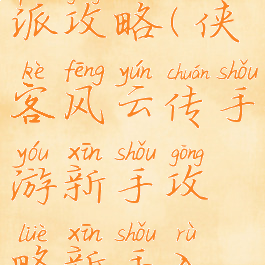 派攻略(侠
kè fēng yún chuán shǒu
客风云传手
yóu xīn shǒu gōng
游新手攻
lüè xīn shǒu rù
略新手入